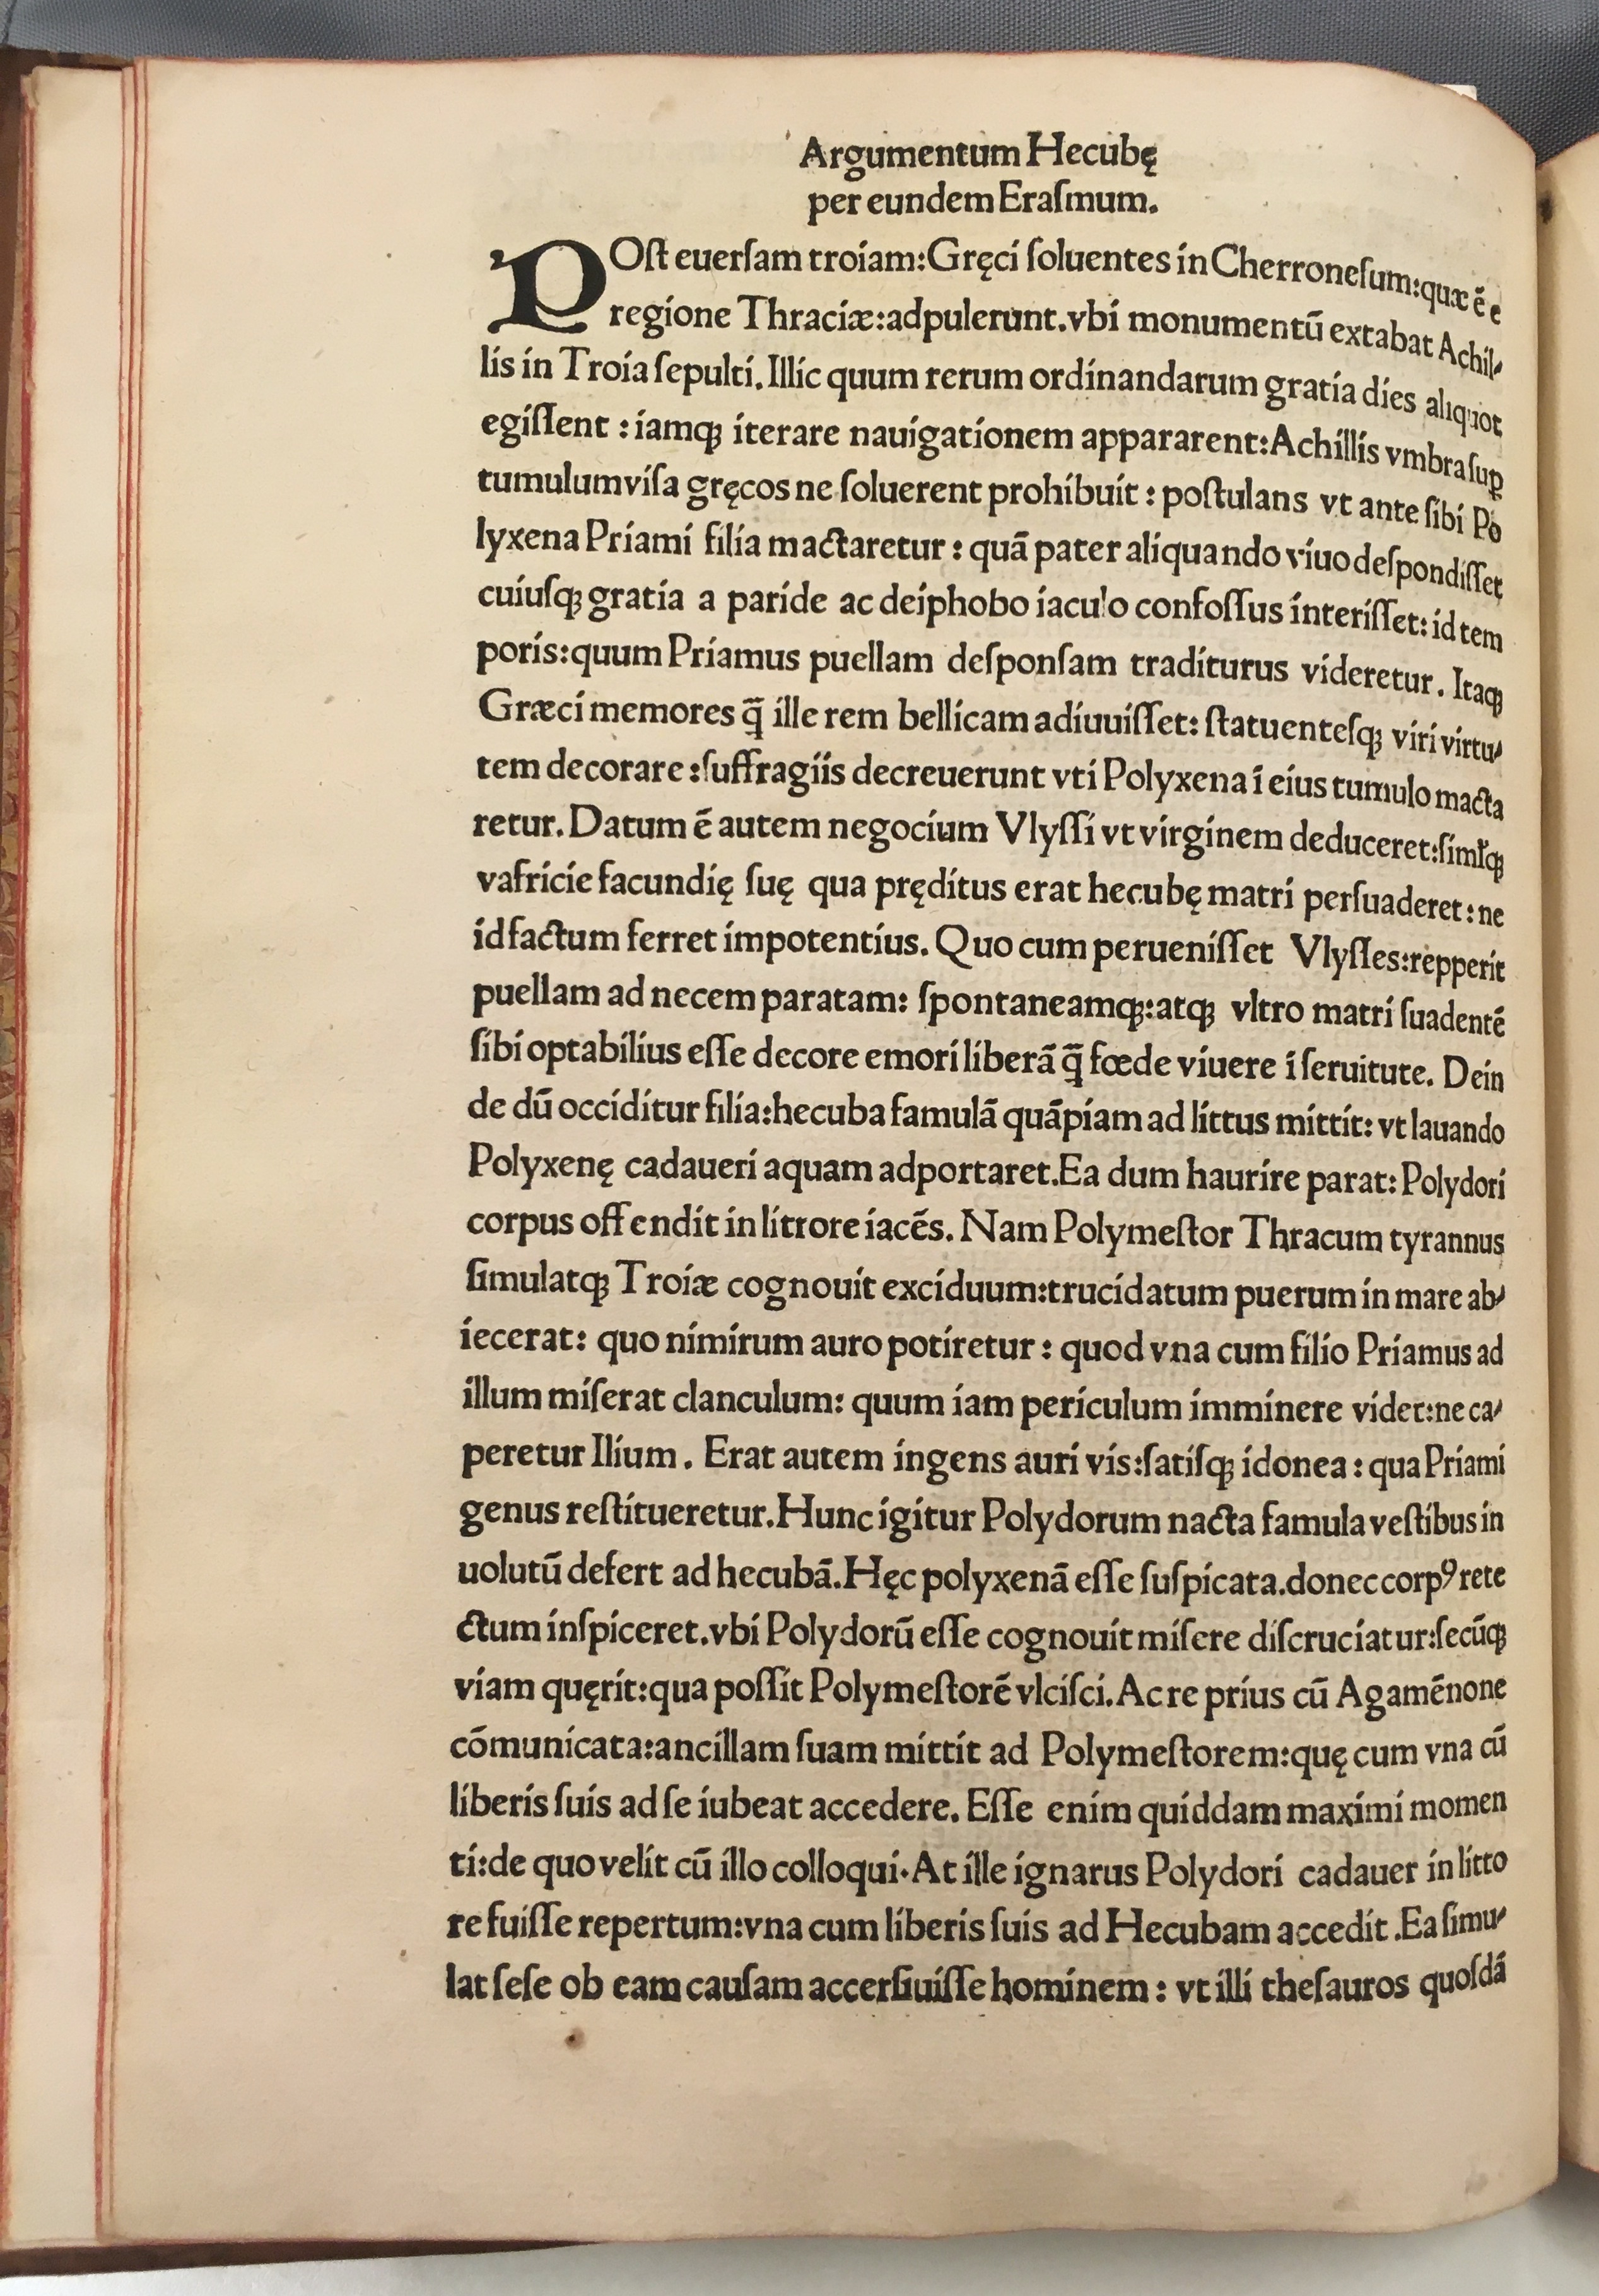 Argumentum Hecubę
per eundem Eraſmum.
POſt euerſam troiam:Gręci ſoluentes in Cherroneſum:quæ ē e
regione Thraciæ:adpulerunt.vbi monumentū extabat Achil⸗
lis in Troia ſepulti. Illic quum rerum ordinandarum gratia dies aliquot
egiſſent : iamq; iterare nauigationem appararent:Achillis vmbra ſuꝑ
tumulum viſa gręcos ne ſoluerent prohibuit : poſtulans vt ante ſibi Po
lyxena Priami filia mactaretur : quā pater aliquando viuo deſpondiſſet
cuiuſq; gratia a paride ac deiphobo iaculo confoſſus interiſſet: id tem
poris:quum Priamus puellam deſponſam traditurus videretur. Itaq;
Græci memores q̄ ille rem bellicam adiuuiſſet: ſtatuenteſq; viri virtu⸗
tem decorare :ſuffragiis decreuerunt vti Polyxena ī eius tumulo macta
retur. Datum ē autem negocium Vlyſſi vt virginem deduceret:ſimłq;
vafricie facundię ſuę qua pręditus erat hecubę matri perſuaderet: ne
id factum ferret impotentius. Quo cum perueniſſet Vlyſſes:repperit
puellam ad necem paratam: ſpontaneamq;:atq; vltro matri ſuadentē
ſibi optabilius eſſe decore emori liberā q̄ fœde viuere ī ſeruitute. Dein
de dū occiditur filia:hecuba famulā quāpiam ad littus mittit: vt lauando
Polyxenę cadaueri aquam adportaret.Ea dum haurire parat: Polydori
corpus offendit in littore iacēs. Nam Polymeſtor Thracum tyrannus
ſimulatq; Troiæ cognouit exciduum:trucidatum puerum in mare ab⸗
iecerat: quo nimirum auro potiretur : quod vna cum filio Priamus ad
illum miſerat clanculum: quum iam periculum imminere videt:ne ca⸗
peretur Ilium. Erat autem ingens auri vis:ſatiſq; idonea : qua Priami
genus reſtitueretur.Hunc igitur Polydorum nacta famula veſtibus in
uolutū defert ad hecubā.Hęc polyxenā eſſe ſuſpicata.donec corpꝰ rete
ctum inſpiceret.vbi Polydorū eſſe cognouit miſere diſcruciatur:ſecūq;
viam quęrit:qua poſſit Polymeſtorē vlciſci.Ac re prius cū Agamēnone
cōmunicata:ancillam ſuam mittit ad Polymeſtorem:quę cum vna cū
liberis ſuis ad ſe iubeat accedere. Eſſe enim quiddam maximi momen
ti:de quo velit cū illo colloqui.At ille ignarus Polydori cadauer in litto
re fuiſſe repertum:vna cum liberis ſuis ad Hecubam accedit.Ea ſimu⸗
lat ſeſe ob eam cauſam accerſiuiſſe hominem : vt illi theſauros quoſdā